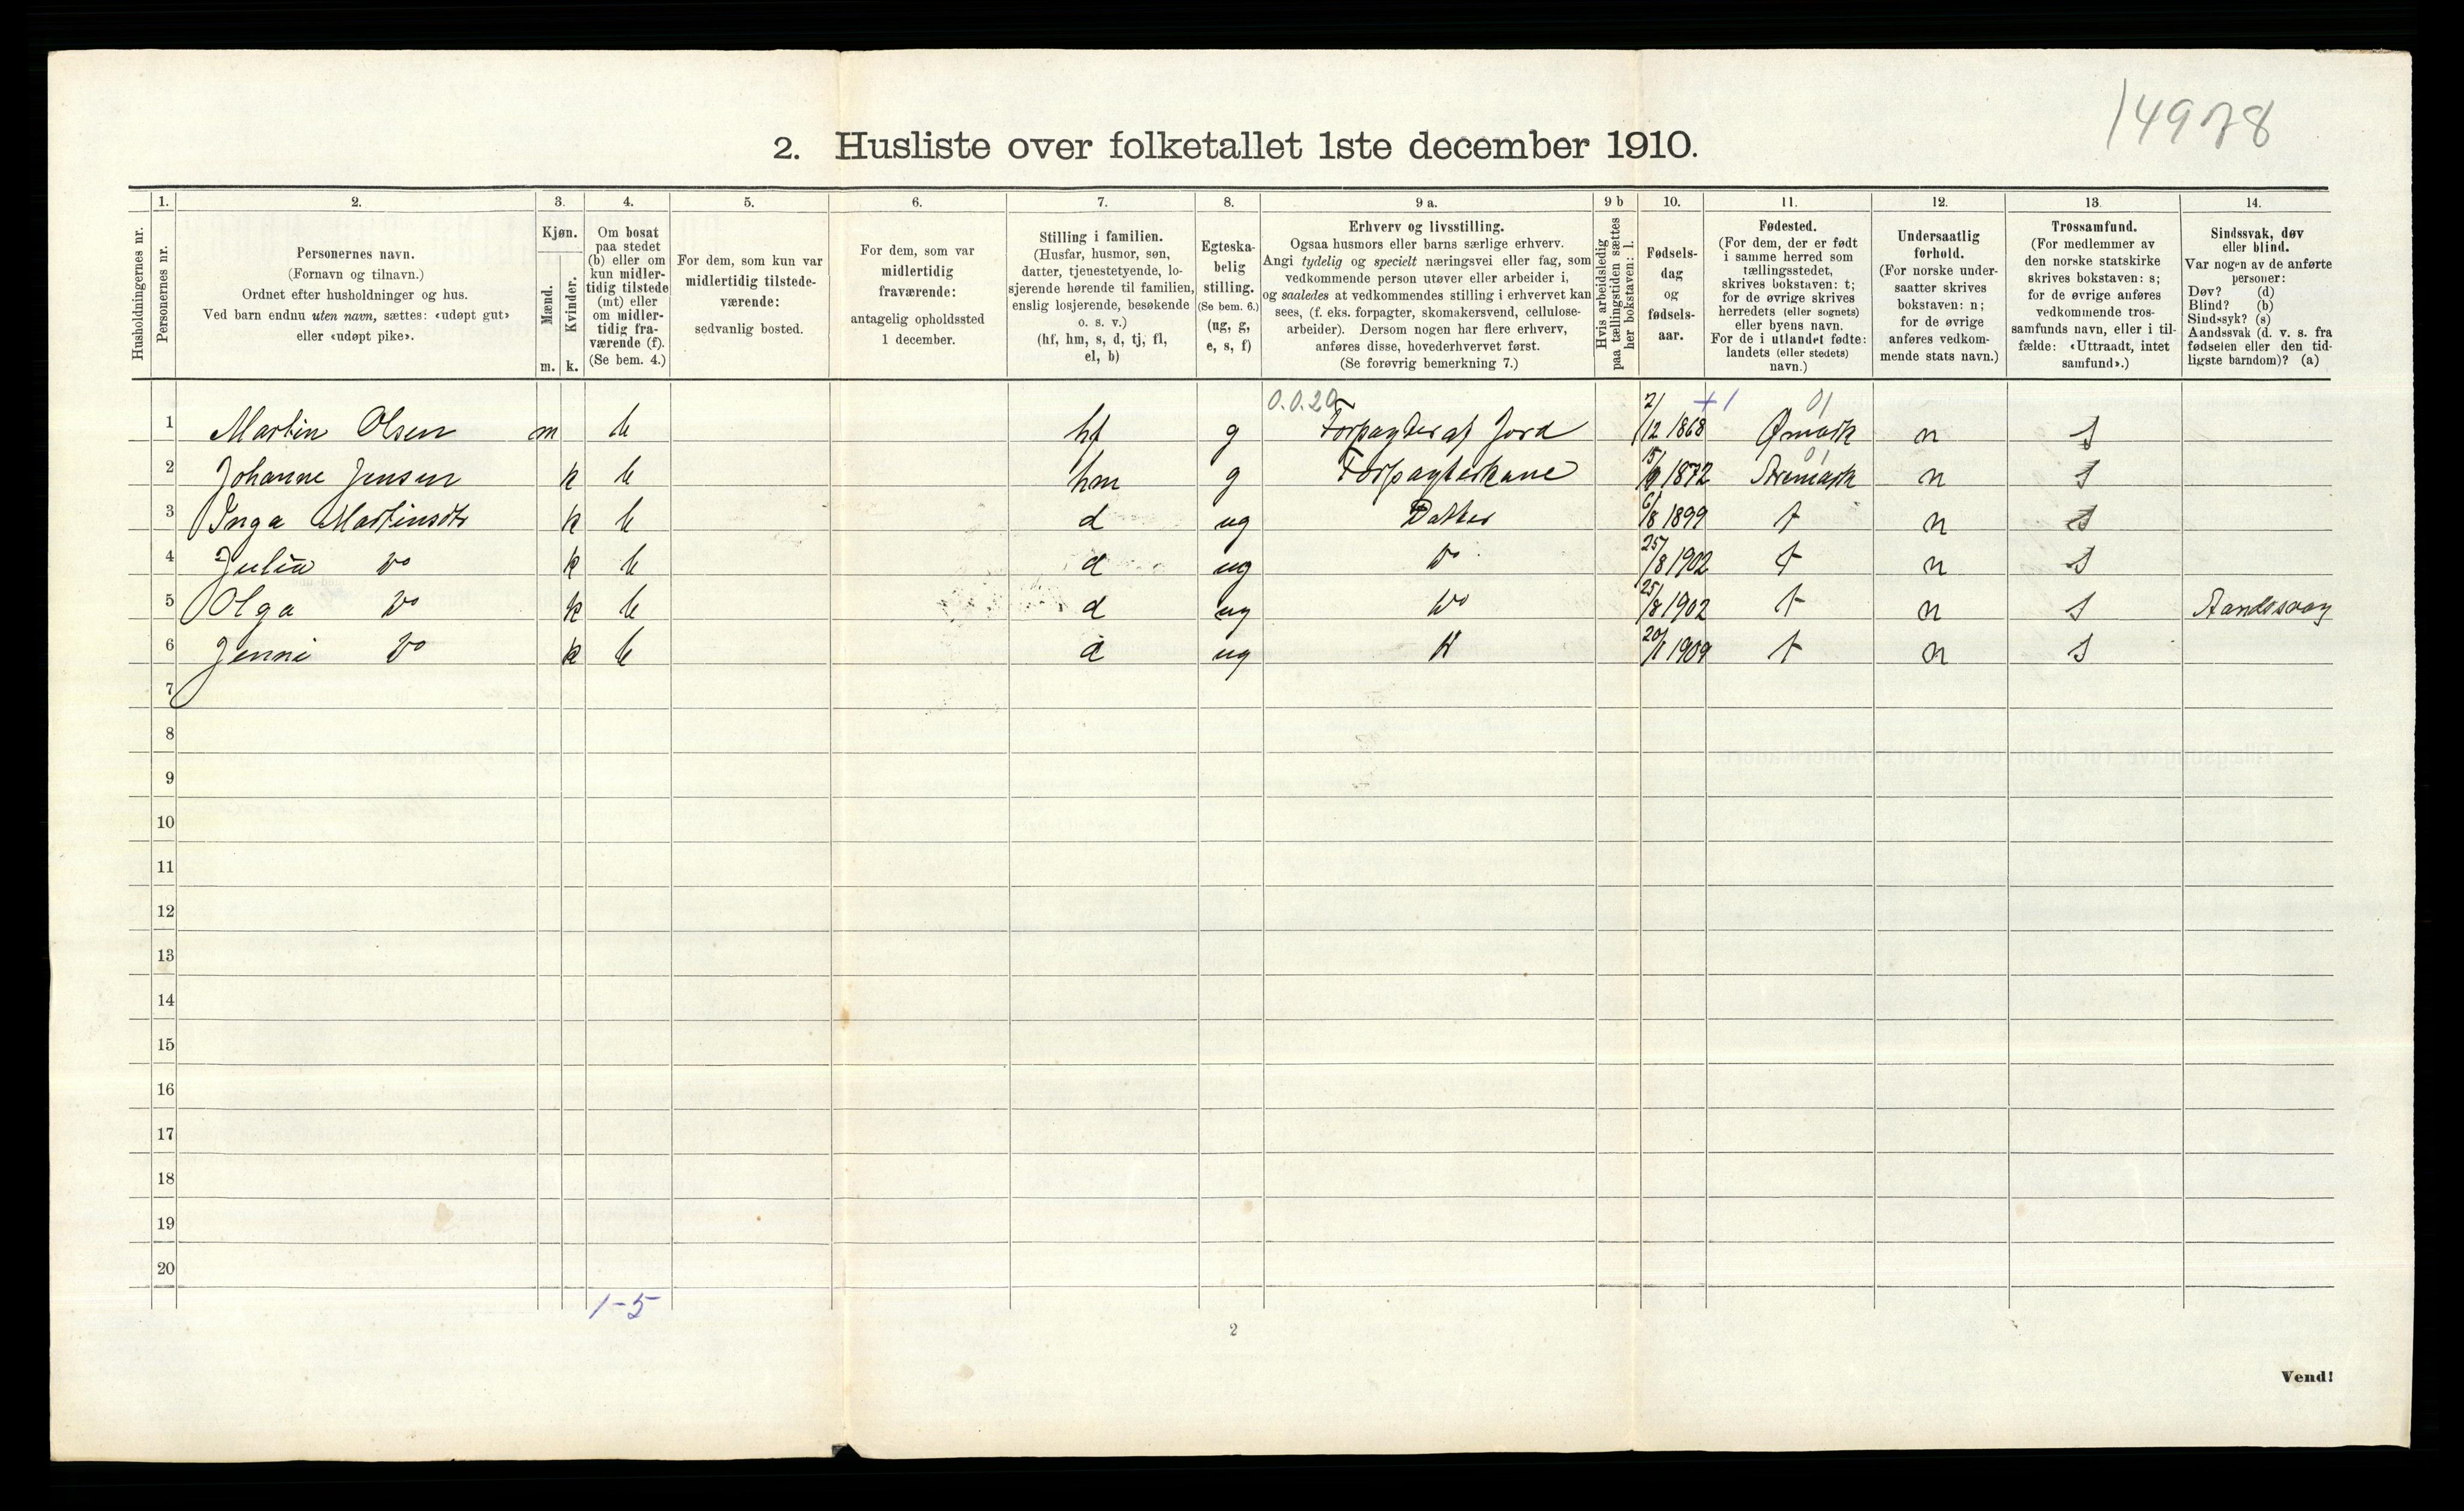 14978
2. Husliste over folketallet 1ste december 1910.
Husholdningernes nr.
1. Personernes nr.
2. Personernes navn.
(Fornavn og tilnavn.)
Ordnet efter husholdninger og hus.
Ved barn endnu uten navn, sættes: «udøpt gut»
eller «udøpt pike».
3. Kjøn.
Mænd. m.
Kvinder. k.
4. Om bosat
paa stedet
(b) eller om
kun midler-
tidig tilstede
(mt) eller
om midler-
tidig fra-
værende (f).
(Se bem. 4.)
5. For dem, som kun var
midlertidig tilstede-
værende:
sedvanlig bosted.
6. For dem, som var
midlertidig
fraværende:
antagelig opholdssted
1 december.
7. Stilling i familien.
(Husfar, husmor, søn,
datter, tjenestetyende, lo-
sjerende hørende til familien,
enslig losjerende, besøkende
o. s. v.)
(hf, hm, s, d, tj, fl,
el, b)
8. Egteska-
belig
stilling.
(Se bem. 6.)
(ug, g,
e, s, f)
9 a. Erhverv og livsstilling.
Ogsaa husmors eller barns særlige erhverv.
Angi tydelig og specielt næringsvei eller fag, som
vedkommende person utøver eller arbeider i,
og saaledes at vedkommendes stilling i erhvervet kan
sees, (f. eks. forpagter, skomakersvend, cellulose-
arbeider). Dersom nogen har flere erhverv,
anføres disse, hovederhvervet først.
(Se forøvrig bemerkning 7.)
9 b Hvis arbeidsledig
paa tællingstiden sættes
her bokstaven: l.
10. Fødsels-
dag
og
fødsels-
aar.
11. Fødested.
(For dem, der er født
i samme herred som
tællingsstedet,
skrives bokstaven: t;
for de øvrige skrives
herredets (eller sognets)
eller byens navn.
For de i utlandet fødte:
landets (eller stedets)
navn.)
12. Undersaatlig
forhold.
(For norske under-
saatter skrives
bokstaven: n;
for de øvrige
anføres vedkom-
mende stats navn.)
13. Trossamfund.
(For medlemmer av
den norske statskirke
skrives bokstaven: s;
for de øvrige anføres
vedkommende tros-
samfunds navn, eller i til-
fælde: «Uttraadt, intet
samfund».)
14. Sindssvak, døv
eller blind.
Var nogen av de anførte
personer:
Døv? (d)
Blind? (b)
Sindssyk? (s)
Aandssvak (d. v. s. fra
fødselen eller den tid-
ligste barndom)? (a)
0.0.20 +1 01
1 Martin Olsen m b hf g Forpagter af Jord 2/12 1868 Ømark n s
01
2 Johanne Jensen k b hm g Forpagterkone 15/ 1872 Aremark n s
3 Inga Martinsdtr k b d ug Datter 6/8 1899 t n s
4 Julia Do k b d ug Do 25/8 1902 t n s
5 Olga Do k b d ug Do 25/8 1902 t n s Aandssvag
6 Jenni Do k b d ug 20/1 1909 t n s
7
8
9
10
11
12
13
14
15
16
17
18
19
20
1-5
2
Vend!